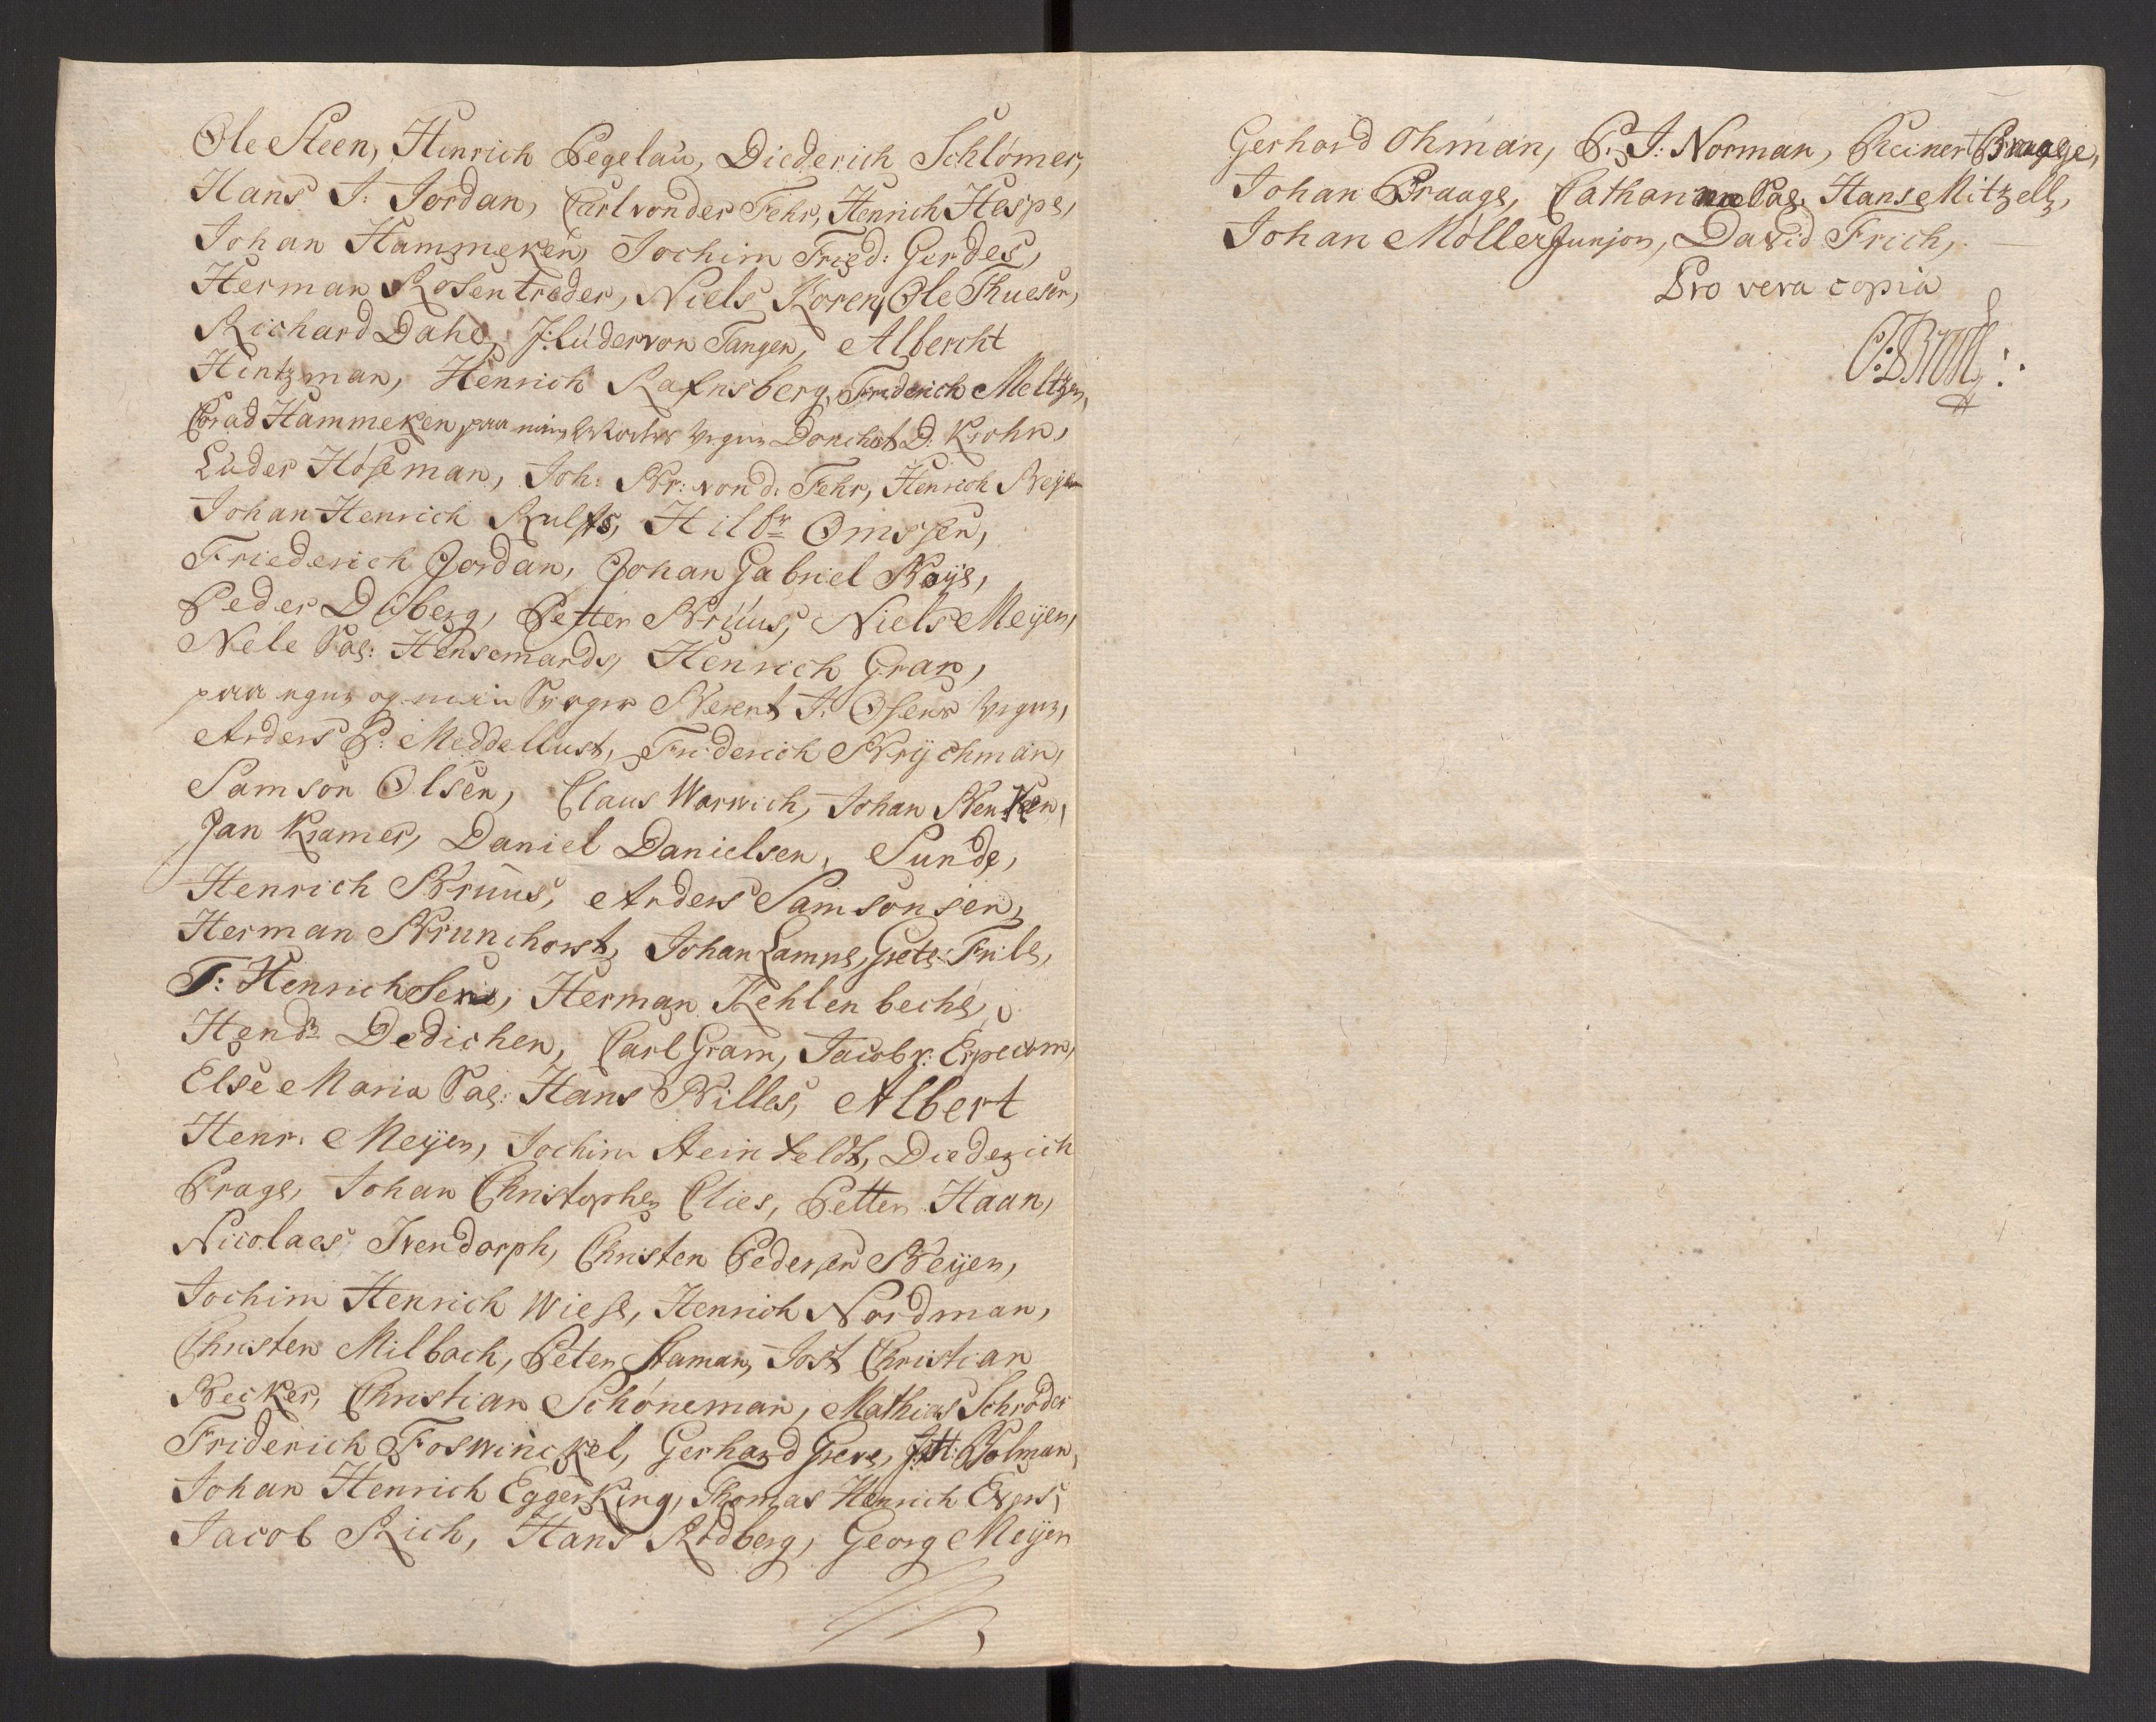 Ole Steen, Hinrich Pegelaú, Diederich Schlömer,
Hans J: Jordan, Carl von der Fehr, Henrich Hespe,
Johan Hammeken, Jochim Fried: Gerdes,
Herman Rosentreder, Niels Koren, Ole Thuesen,
Richard Dahl, J: Lúder von Tangen, Albercht
Hintzman, Henrich Rafnsberg, Friderich Meltzer,
Corad Hammeken paa min Wegne Donchel D: Krohn,
Lúder Höseman, Joh: Br: von d: Fehr, Henrich Beyer
Johan Henrich Rulffs, Hilbr Omssen,
Friederich Jordan, Johan Gabriel Boye,
Peder Dúberg, Petter Brúús, Niels Meyer,
Nele Sal: Hensemands, Henrich Gran,
paa egne og min Berent J: Olsens Vegne,
Anders P: Meddellust, Friderich Brÿchman,
Samson Olsen, Claus Warwich, Johan Benken,
Jan Kramer, Daniel Danielsen, Sunde,
Henrich Brúús, Anders Samsonsen,
Herman Brunchorst, Johan Lampe, Grete Friis,
T: Henrichsen, Herman Kehlenbech,
Hendr Dedichen, Carl Gram, Jacob v: Erpecom,
Else Maria Sal: Hans Billes, Albert
Henr: Meyer, Jochim Steinfeldt, Diederich
Prage, Johan Christopher Clies, Petter Haan,
Nicolaes Ivendorph, Christen Pedersen Beyer,
Jochim Henrich Wiese, Henrich Nordman,
Christen Milbach, Peter Haman, Jost Christian
Becker, Christian Schöneman, Mathias Schröder
Friderich Foswinckel, Gerhard Greve, J: H: Bolman,
Johan Henrich Eggerking, Thomas Henrich Evers,
Jacob Rich, Hans Rødberg, Georg Meyer
Gerhard Ohman, P: J: Norman, Reinert Braage,
Johan Praage, Catharina Sal. Hans Mitzell,
Johan Möller Junjor, David Frich,
Pro vera copia